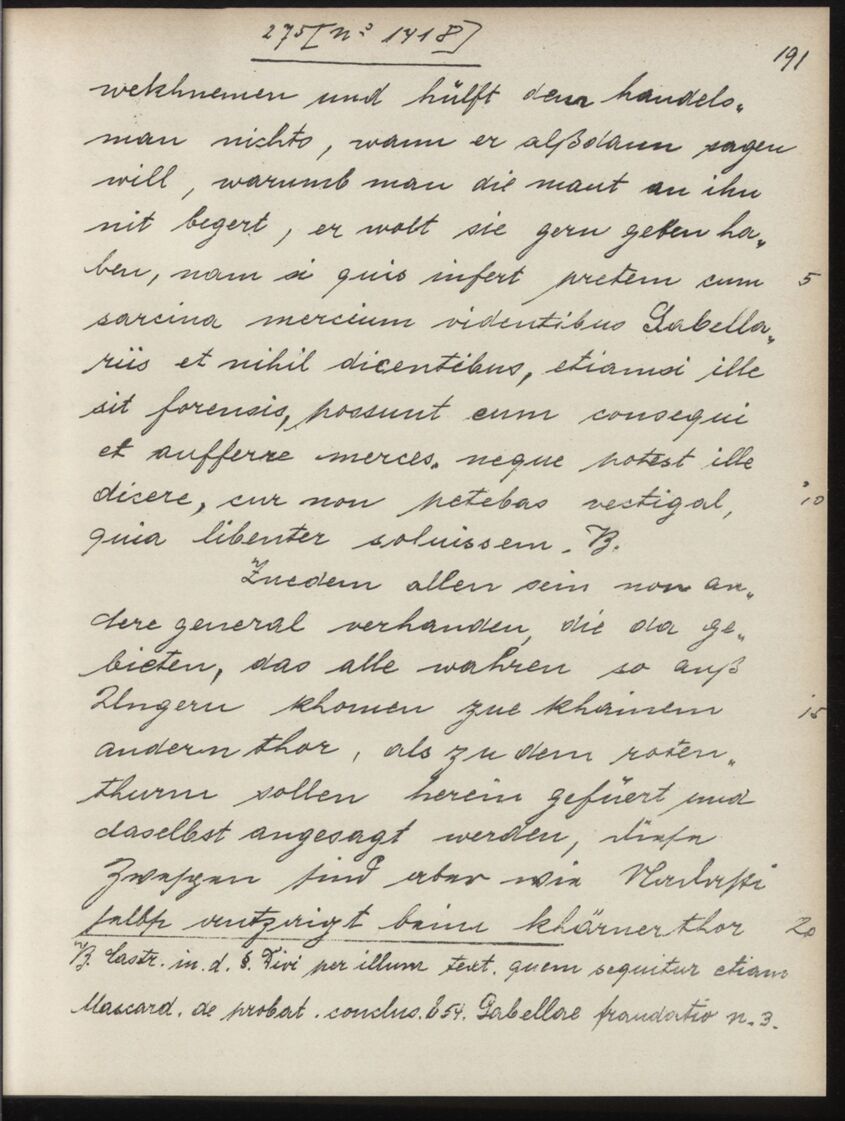 275 [nº 1418]
191
wekhnemen und hülfft dem handels„
man nichts, wann er alßdann sagen
will, warumb man die maut an ihn
nit begert, er wolt sie gern geben ha„
ben, nam si quis infert pretem cum 5
sarcina mercium videntibus Gabella„
riis et nihil dicentibus, etiamsi ille
sit forensis, possunt eum consequi
et aufferre merces. neque potest ille
dicere, cur non petebas vectigal, 10
quia libenter soluissem. B.
Zuedem allen sein non an„
dere general verhanden, die da ge„
bieten, das alle wahren so auß
Ungern khomen zue khainem 15
andern thor, als zu dem roten„
thurm sollen herein gefüert und
daselbst angesagt werden, diese
sind aber wie Nadasti
selbst beim khärner thor 20
B. Castr. in. d. §. Divi per illum text. quem sequitur etiam
Mascard. de probat. conclus. 854. Gabellae fraudatio n. 3.